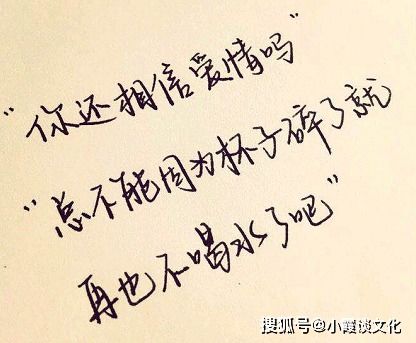 "你还相信爱情吗"
"总不能因为杯子碎了就
再也不喝水了吧"
搜狐号@小霞谈文化